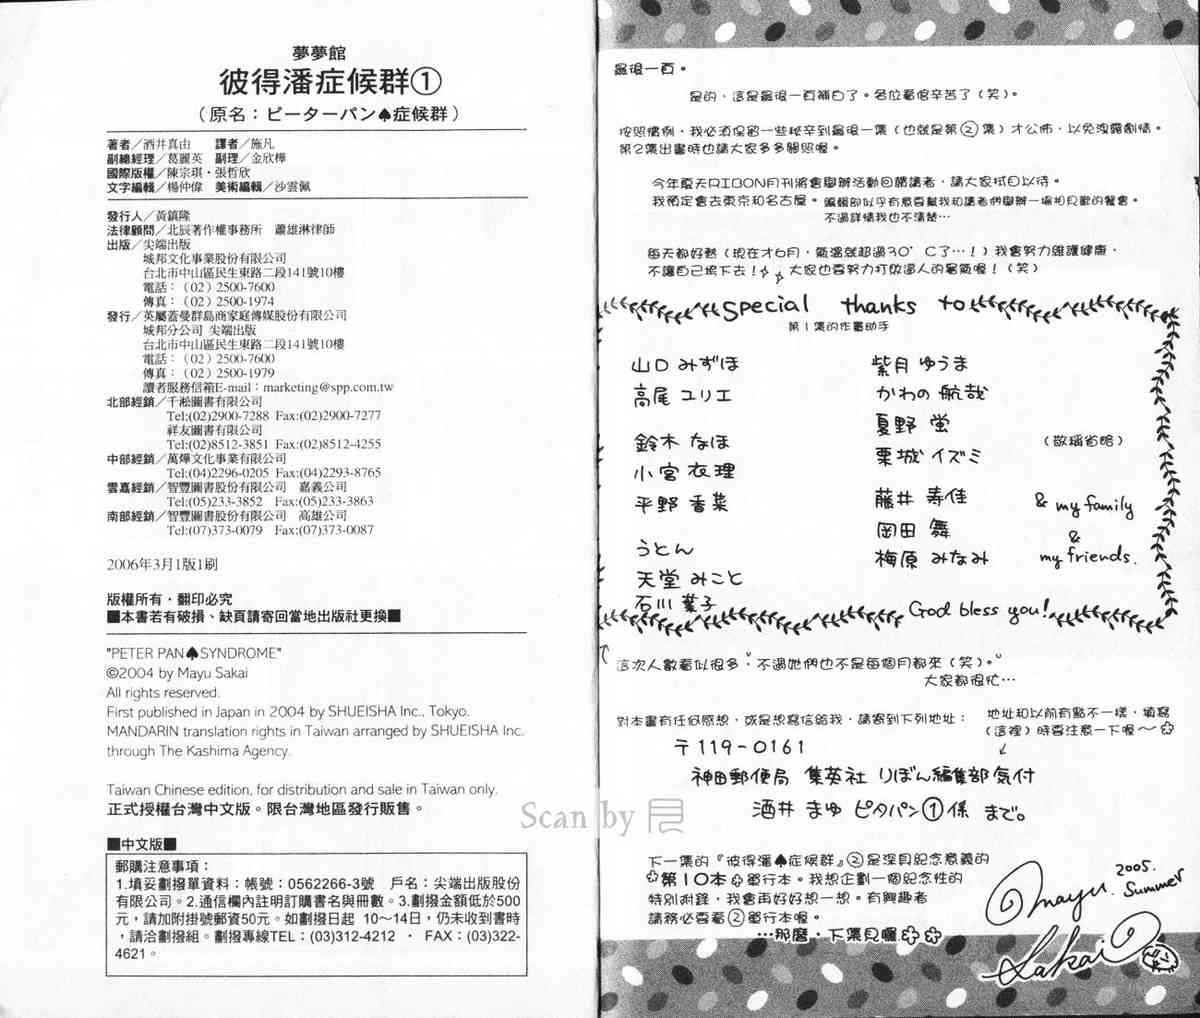 夢夢館
彼得潘症候群①
（原名：ピーターパン♠症候群）
著者／酒井真由　譯者／施凡
副總經理／葛麗英　副理／金欣樺
國際版權／陳宗琪・張哲欣
文字編輯／楊仲偉　美術編輯／沙雲佩
發行人／黃鎮隆
法律顧問／北辰著作權事務所　蕭雄淋律師
出版／尖端出版
城邦文化事業股份有限公司
台北市中山區民生東路二段141號10樓
電話：（02）2500-7600
傳真：（02）2500-1974
發行／英屬蓋曼群島商家庭傳媒股份有限公司
城邦分公司 尖端出版
台北市中山區民生東路二段141號10樓
電話：（02）2500-7600
傳真：（02）2500-1979
讀者服務信箱E-mail：marketing@spp.com.tw
北部經銷／千淞圖書有限公司
Tel:(02)2900-7288 Fax:(02)2900-7277
祥友圖書有限公司
Tel:(02)8512-3851 Fax:(02)8512-4255
中部經銷／萬燁文化事業有限公司
Tel:(04)2296-0205 Fax:(04)2293-8765
雲嘉經銷／智豐圖書股份有限公司　嘉義公司
Tel:(05)233-3852 Fax:(05)233-3863
南部經銷／智豐圖書股份有限公司　高雄公司
Tel:(07)373-0079 Fax:(07)373-0087
2006年3月1版1刷
版權所有・翻印必究
■本書若有破損、缺頁請寄回當地出版社更換■
"PETER PAN♠SYNDROME"
©2004 by Mayu Sakai
All rights reserved.
First published in Japan in 2004 by SHUEISHA Inc., Tokyo.
MANDARIN translation rights in Taiwan arranged by SHUEISHA Inc.
through The Kashima Agency.
Taiwan Chinese edition, for distribution and sale in Taiwan only.
正式授權台灣中文版。限台灣地區發行販售。
■中文版■
郵購注意事項：
1.填妥劃撥單資料：帳號：0562266-3號　戶名：尖端出版股份
有限公司。2.通信欄內註明訂購書名與冊數。3.劃撥金額低於500
元，請加附掛號郵資50元。如劃撥日起 10～14日，仍未收到書時
，請洽劃撥組。劃撥專線TEL：(03)312-4212 ・ FAX：(03)322-
4621。
Scan by
最後一頁。
是的，這是最後一頁補白了。各位看倌辛苦了（笑）。
按照慣例，我必須保留一些秘辛到最後一集（也就是第②集）才公佈，以免洩露劇情。
第2集出書時也請大家多多關照喔。
今年夏天RIBON月刊將會舉辦活動回饋讀者，請大家拭目以待。
我預定會去東京和名古屋。編輯部似乎有意要幫我和讀者們舉辦一場相見歡的餐會。
不過詳情我也不清楚…
每天都好熱（現在才6月，氣溫就超過30°C了…！）我會努力維護健康，
不讓自己垮下去！大家也要努力打敗逼人的暑氣喔！（笑）
special thanks to
第1集的作畫助手
山口 みずほ
高尾 ユリエ
鈴木 なほ
小宮 衣理
平野 香菜
うとん
天堂 みこと
石川 葉子
紫月 ゆうま
かわの 航哉
夏野 蛍
栗城 イズミ
藤井 寿佳
岡田 舞
梅原 みなみ
（敬稱省略）
& my family
&
my friends.
God bless you!
這次人數看似很多，不過她們也不是每個月都來（笑）。
大家都很忙…
對本書有任何感想，或是想寫信給我，請寄到下列地址：
地址和以前有點不一樣，填寫
（這裡）時要注意一下喔～
〒119-0161
神田郵便局 集英社 りぼん編集部気付
酒井 まゆ ピタパン①係 まで。
下一集的『彼得潘♠症候群』②是深具紀念意義的
第10本單行本。我想企劃一個紀念性的
特別附錄，我會再好好想一想。有興趣者
請務必要看②單行本喔。
…那麼，下集見囉
2005.
Summer
Mayu
Sakai